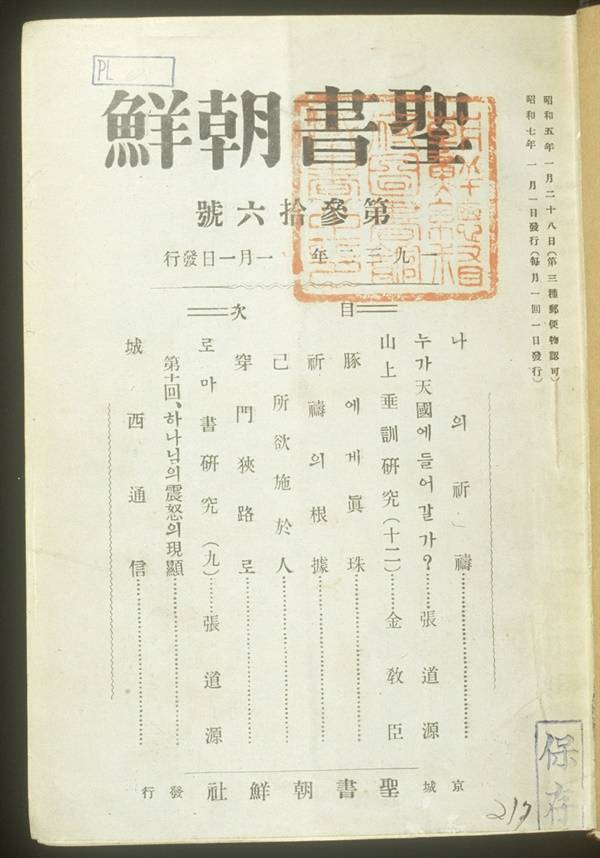 PL
昭和五年一月二十八日(第三種郵便物認可)
昭和七年 一月一日發行(每月一回一日發行)
聖書朝鮮
第參拾六號
一九三二年 一月一日發行
目次
나의祈禱
누가天國에들어갈가?……張道源
山上垂訓硏究(十二)……金敎臣
豚에게眞珠
祈禱의根據
己所欲施於人
穿門狹路로
로마書硏究(九)……張道源
第十一回、하나님의震怒의現顯
城西通信
京城 聖書朝鮮社 發行
保存
217